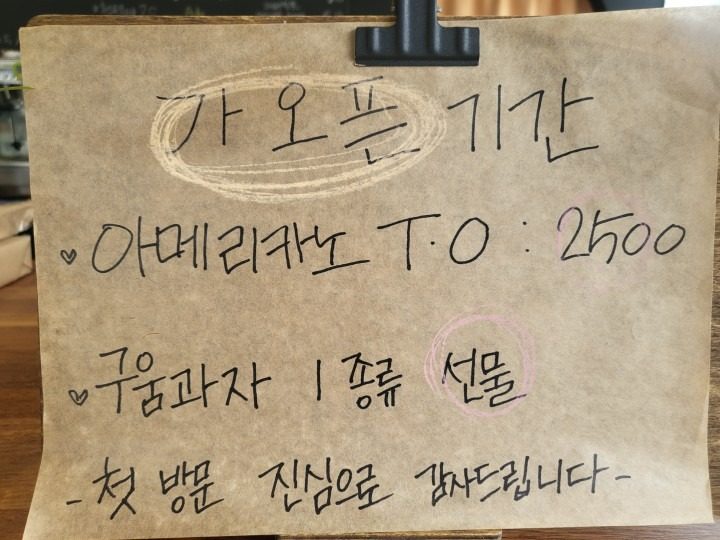 가오픈 기간
♡ 아메리카노 T.O : 2500
♡ 구움과자 1종류 선물
- 첫 방문 진심으로 감사드립니다 -